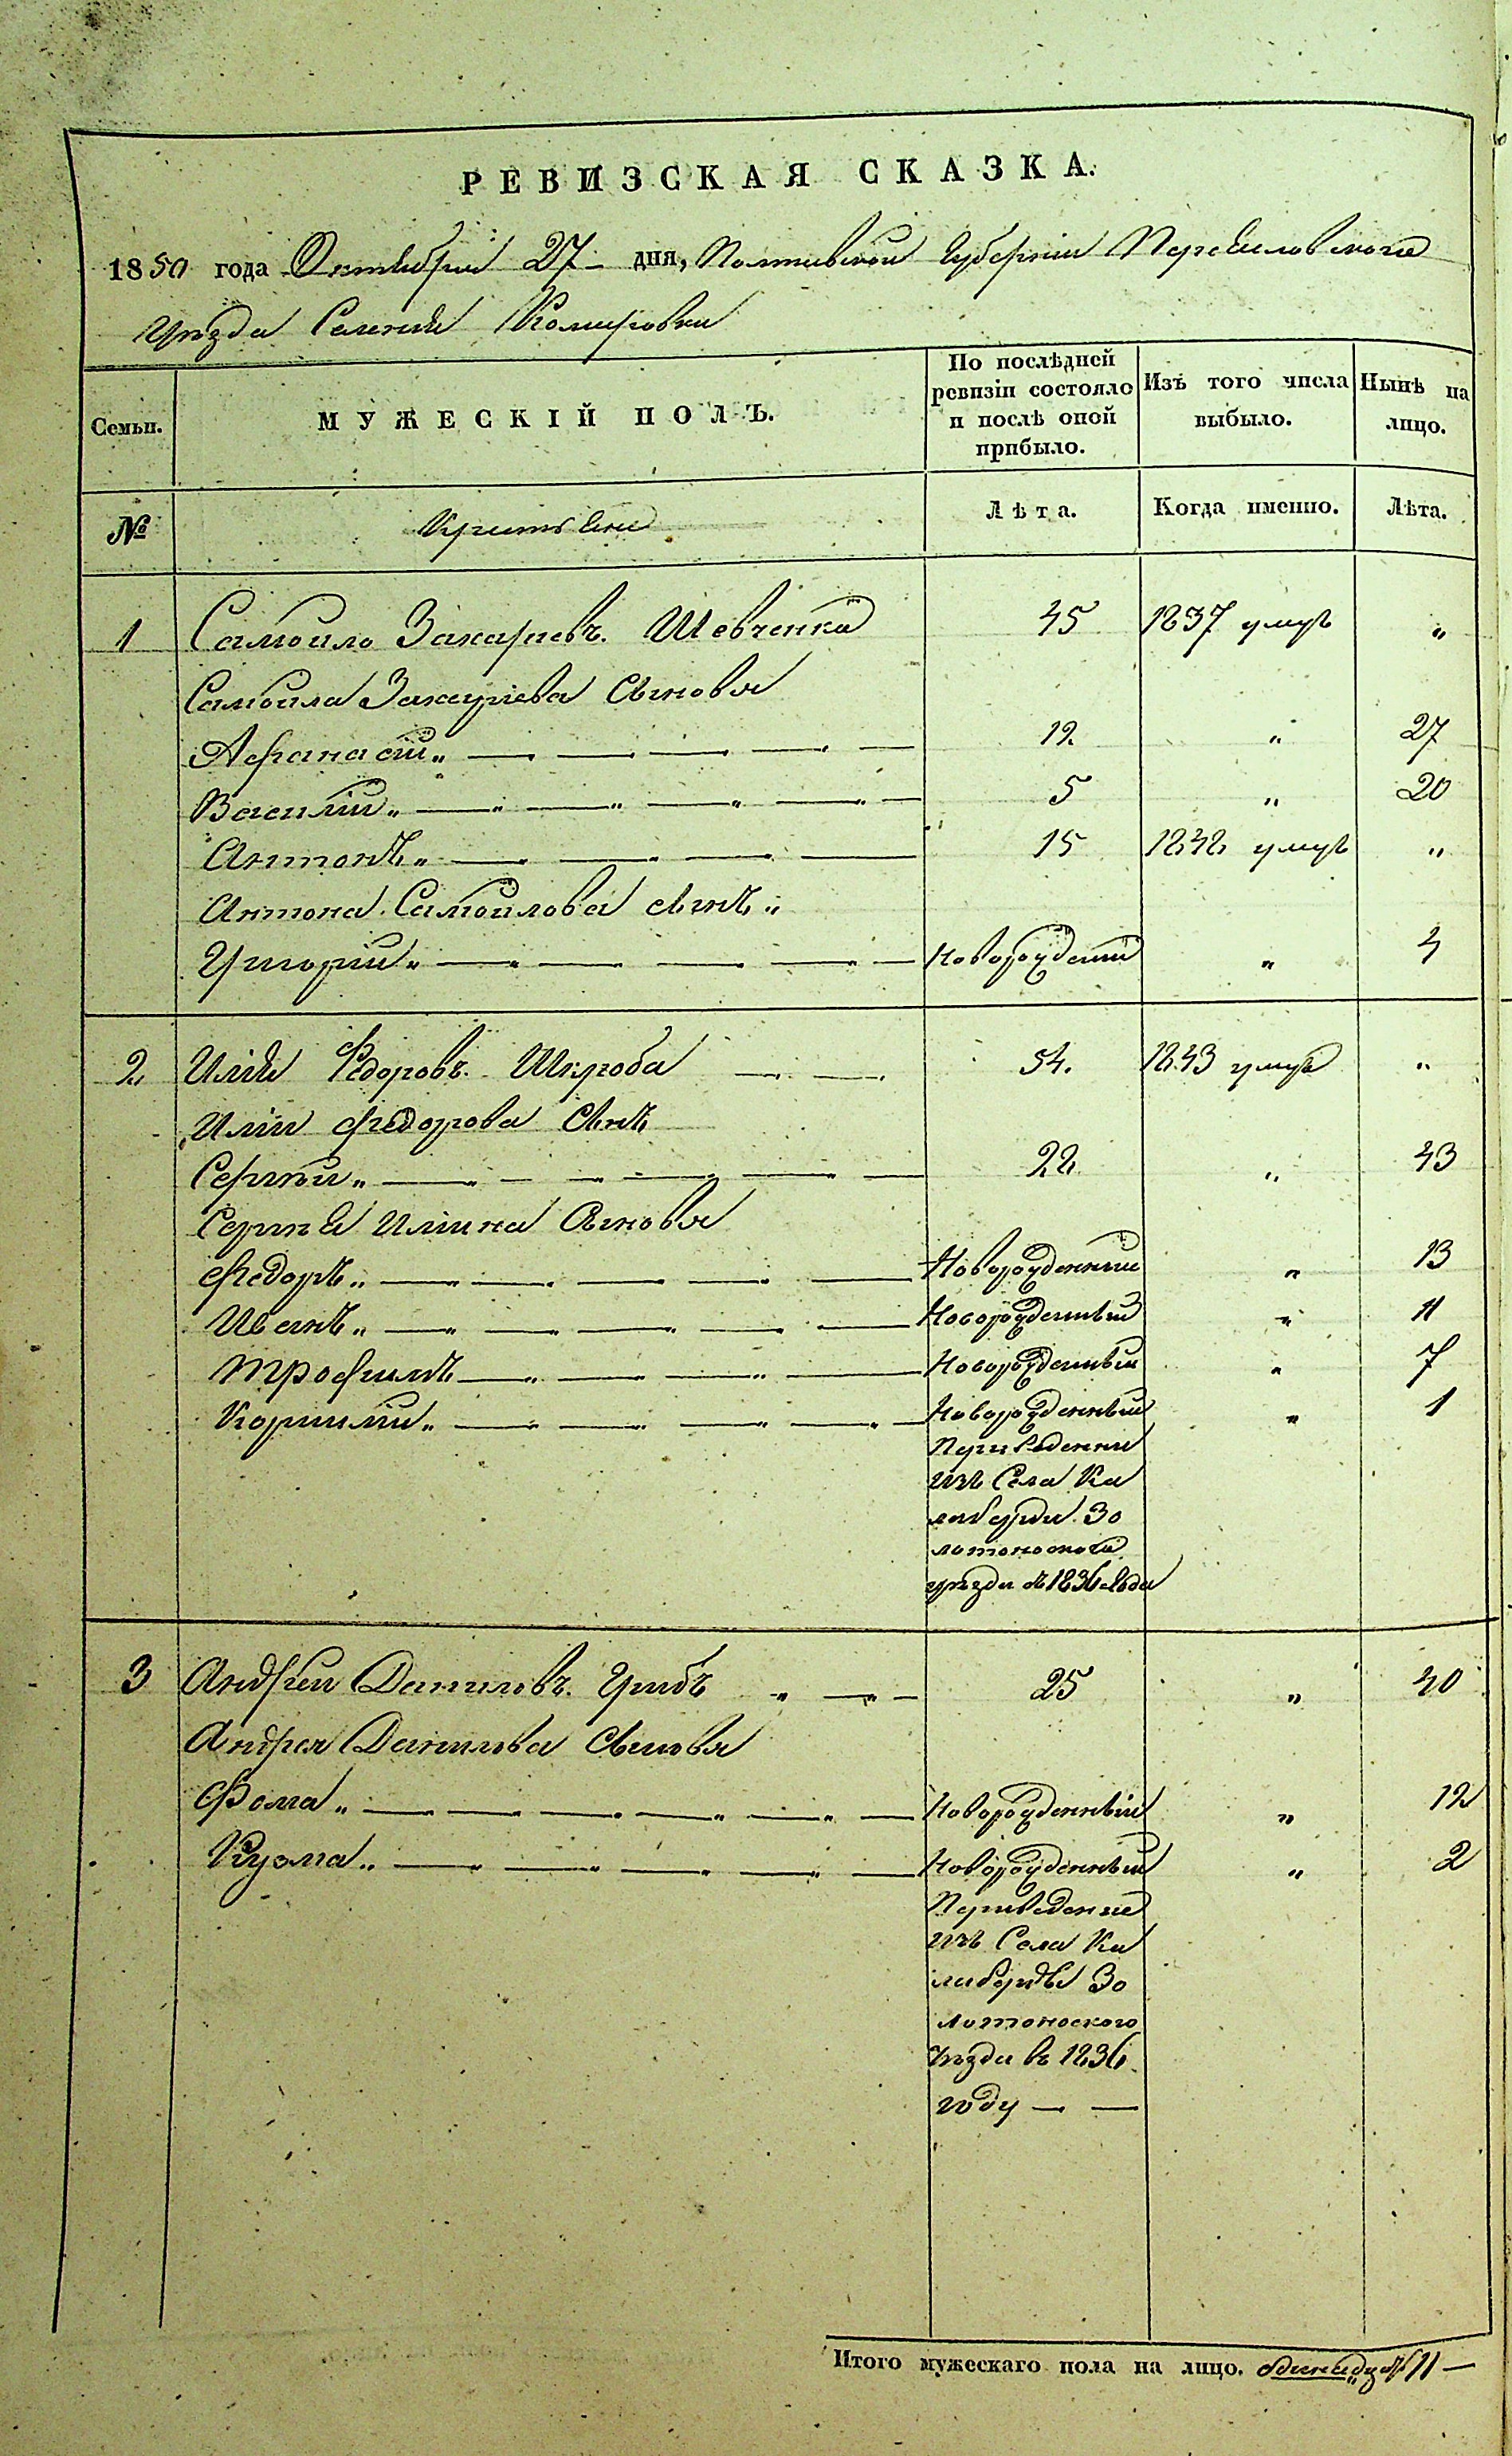 РЕВИЗСКАЯ СКАЗКА.
1850 года Октября 27 дня, Полтавской Губернии Переяславского
Уезда Селения Комаровки
Семьи.
МУЖЕСКІЙ ПОЛЪ.
По послѣдней ревизіи состояло и послѣ оной прибыло.
Изъ того числа выбыло.
Нынѣ на лицо.
№
Крестьяне
Лѣта.
Когда именно.
Лѣта.
1 Самойло Захариевъ Шевченко 45 1837 умре „
Самойла Захариева Сыновья
Афанасій „ 12 „ 27
Василій „ 5 „ 20
Антонъ „ 15 1848 умре „
Антона Самойлова сынъ „
Григорій „ Новорожденій „ 4
2 Илія Федоровъ Шкроба 54. 1843 умре „
Иліи Федорова Сынъ
Сергѣй „ 28 „ 43
Сергѣя Иліина Сыновья
Федоръ „ Новорожденный „ 13
Иванъ „ Новорожденный „ 11
Трофимъ Новорожденный „ 7
Корнилій „ Новорожденный „ 1
Переведенни
изъ Села Ка
леберди Зо
лотоноского
уезда въ 1836 года
3 Андрей Даниловъ Грибъ „ 25 „ 40
Андрея Данилова Сыновья
Фома „ Новорожденный „ 12
Кузма „ Новорожденный „ 2
Переведение
изъ Села Ка
либерды Зо
лотоноского
уезда въ 1836
году
Итого мужескаго пола на лицо. одинадцать 11